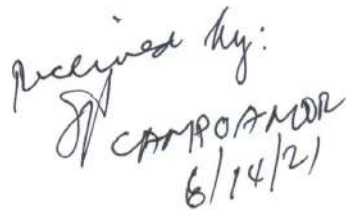 received by:
CAMPOAMOR
6/14/21